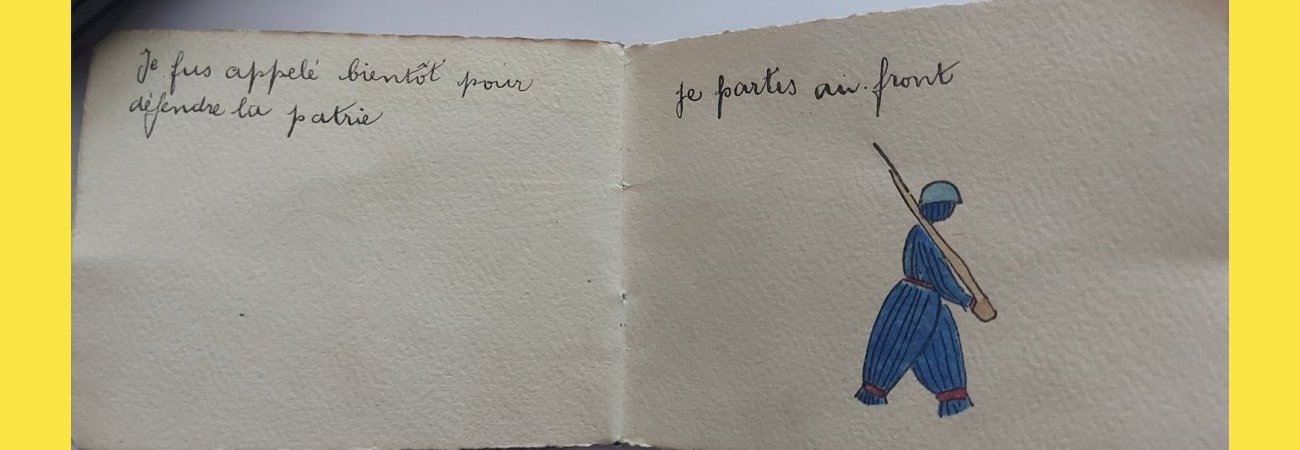 Je fus appelé bientôt pour
défendre la patrie
je partis au front